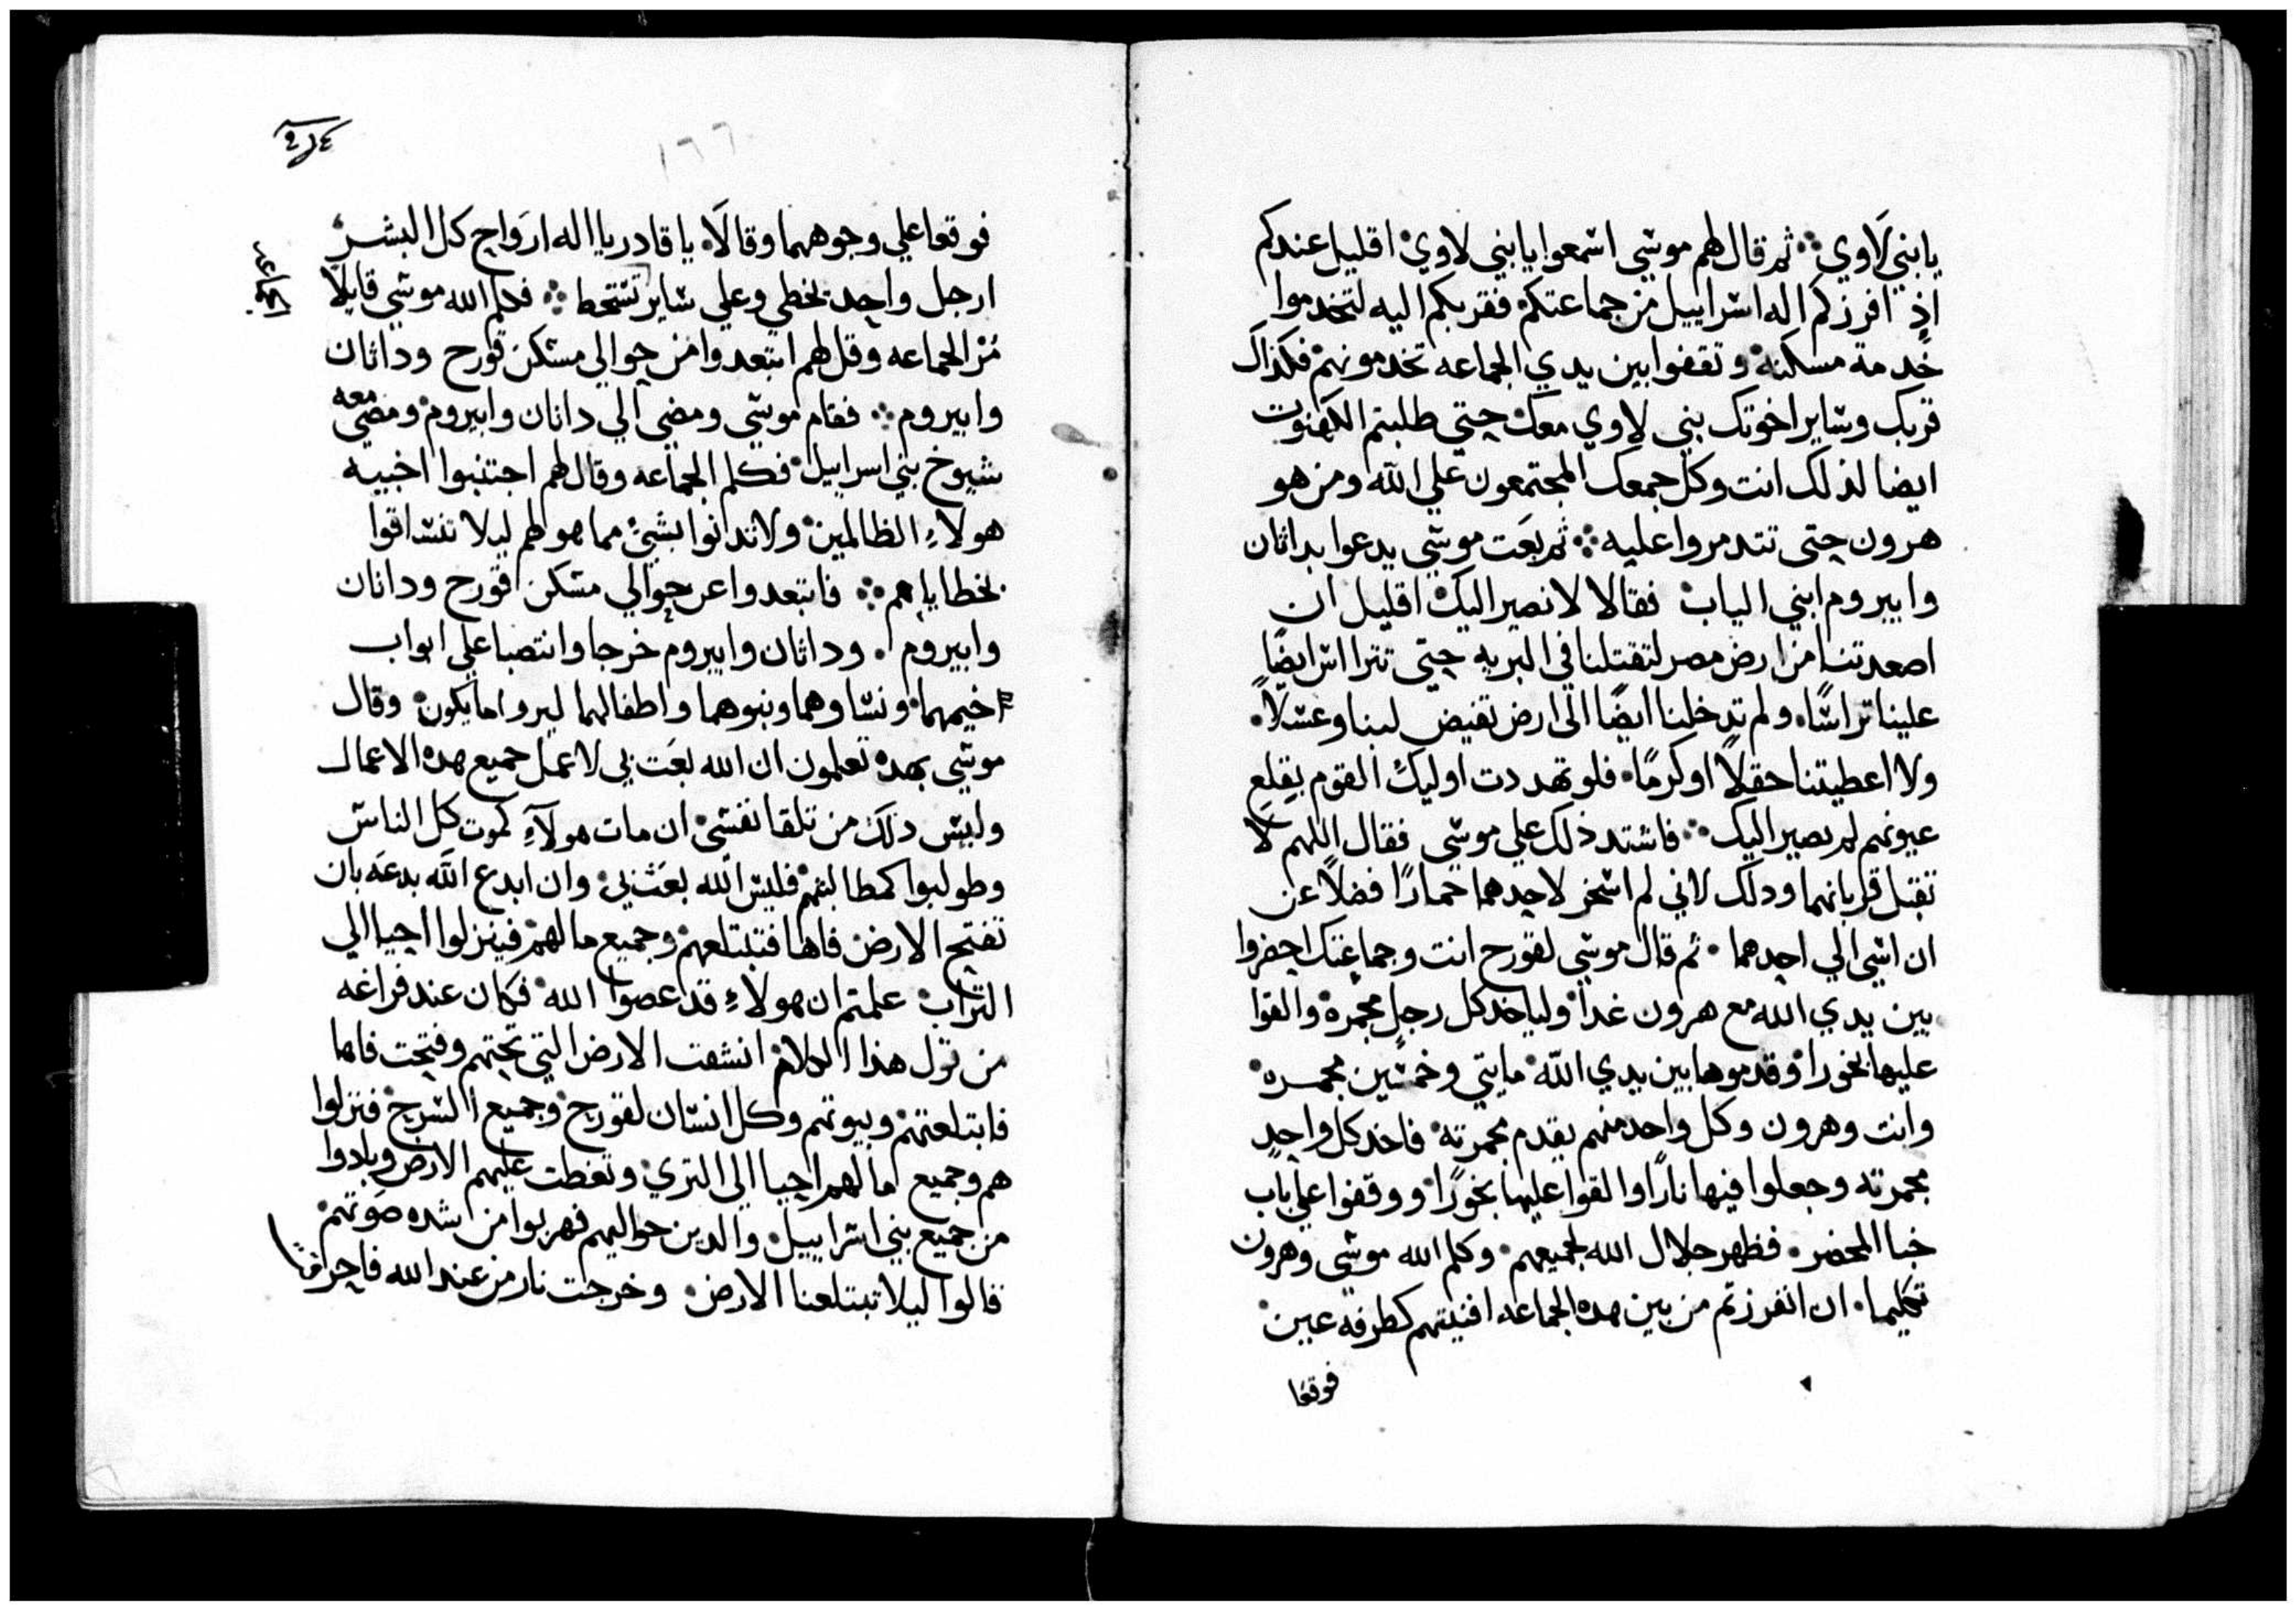 يا بني لاوي ثم قال لهم موسي اسمعوا يا بني لاوي اقليل عندكم
اذ افرزكم اله اسراييل من جماعتكم فقربكم اليه لتخدموا
خدمة مسكنه وتقفوا بين يدي الجماعه تخدمونهم فكذاك
قربك وساير اخوتك بني لاوي معك حتي طلبتم الكهنوت
ايضا لذلك انت وكل جمعك المجتمعون علي الله ومن هو
هرون حتى تتدمروا عليه ثم بعت موسي يدعوا بداثان
وابيروم ابني الياب فقالا لا نصير اليك اقليل ان
اصعدتنا من ارض مصر لتقتلنا في البريه حتي تتراس ايضًا
علينا تراسًا ولم تدخلنا ايضًا الى ارض تفيض لبنا وعسلًا
ولا اعطيتنا حقلًا او كرمًا فلو تهددت اوليك القوم بقلع
عيونهم لم نصير اليك فاشتد ذلك علي موسي فقال اللهم لا
تقبل قربانهما ودلك لاني لم اسخر لاحدهما حمارًا فضلًا عن
ان اسي الي احدهما ثم قال موسي لقورح انت وجماعتك احضروا
بين يدي الله مع هرون غدا ولياخد كل رجل مجمرة والقوا
عليها بخورا وقدموها بين يدي الله مايتي وخمسين مجمره
وانت وهرون وكل واحد منهم يقدم مجمرته فاخد كل واحد
مجمرته وجعلوا فيها نارًا والقوا عليها بخورًا ووقفوا علي باب
خبا المحضر فظهر جلال الله لجميعهم وكلم الله موسى وهرون
تكليما ان انفرزتم من بين هده الجماعه افنيتهم كطرفة عين
فوقعا
١٦٦
فوقعا علي وجوههما وقالا يا قادر يا اله ارواح كل البشر
ارجل واحد يخطي وعلي ساير تسخط فكلم الله موسي قايلا
مر الجماعه وقل لهم ابتعدوا من حوالي مسكن قورح وداثان
وابيروم فقام موسي ومضي الي داثان وابيروم ومضي معه
شيوخ بني اسراييل فكلم الجماعه وقال لهم اجتنبوا اخبيه
هولاء الظالمين ولا تدانوا بشئ مما هو لهم ليلا تنساقوا
بخطاياهم فابتعدوا عن حوالي مسكن قورح وداثان
وابيروم وداثان وابيروم خرجا وانتصبا علي ابواب
اخيمهما ونساوهما وبنوهما واطفالهما ليروا ما يكون وقال
موسي بهده تعلمون ان الله بعت بي لاعمل جميع هده الاعمال
وليس دلك من تلقا نفسي ان مات هولاء كموت كل الناس
وطولبوا كمطالبتهم فليس الله بعث بي وان ابدع الله بدعه بان
تفتح الارض فاها فتبتلعهم وجميع ما لهم فينزلوا احيا الي
التراب علمتم ان هولاء قد عصوا الله فكان عند فراغه
من قول هذا الكلام انشقت الارض التي تحتهم وفتحت فاها
فابتلعتهم وبيوتهم وكل انسان لقورح وجميع السرح فنزلوا
هم وجميع ما لهم احيا الى الثري وتغطت عليهم الارض وبادوا
من جميع بني اسراييل والدين حواليهم فهربوا من شده صوتهم
قالوا ليلا تبتلعنا الارض وخرجت نار من عند الله فاحرقت